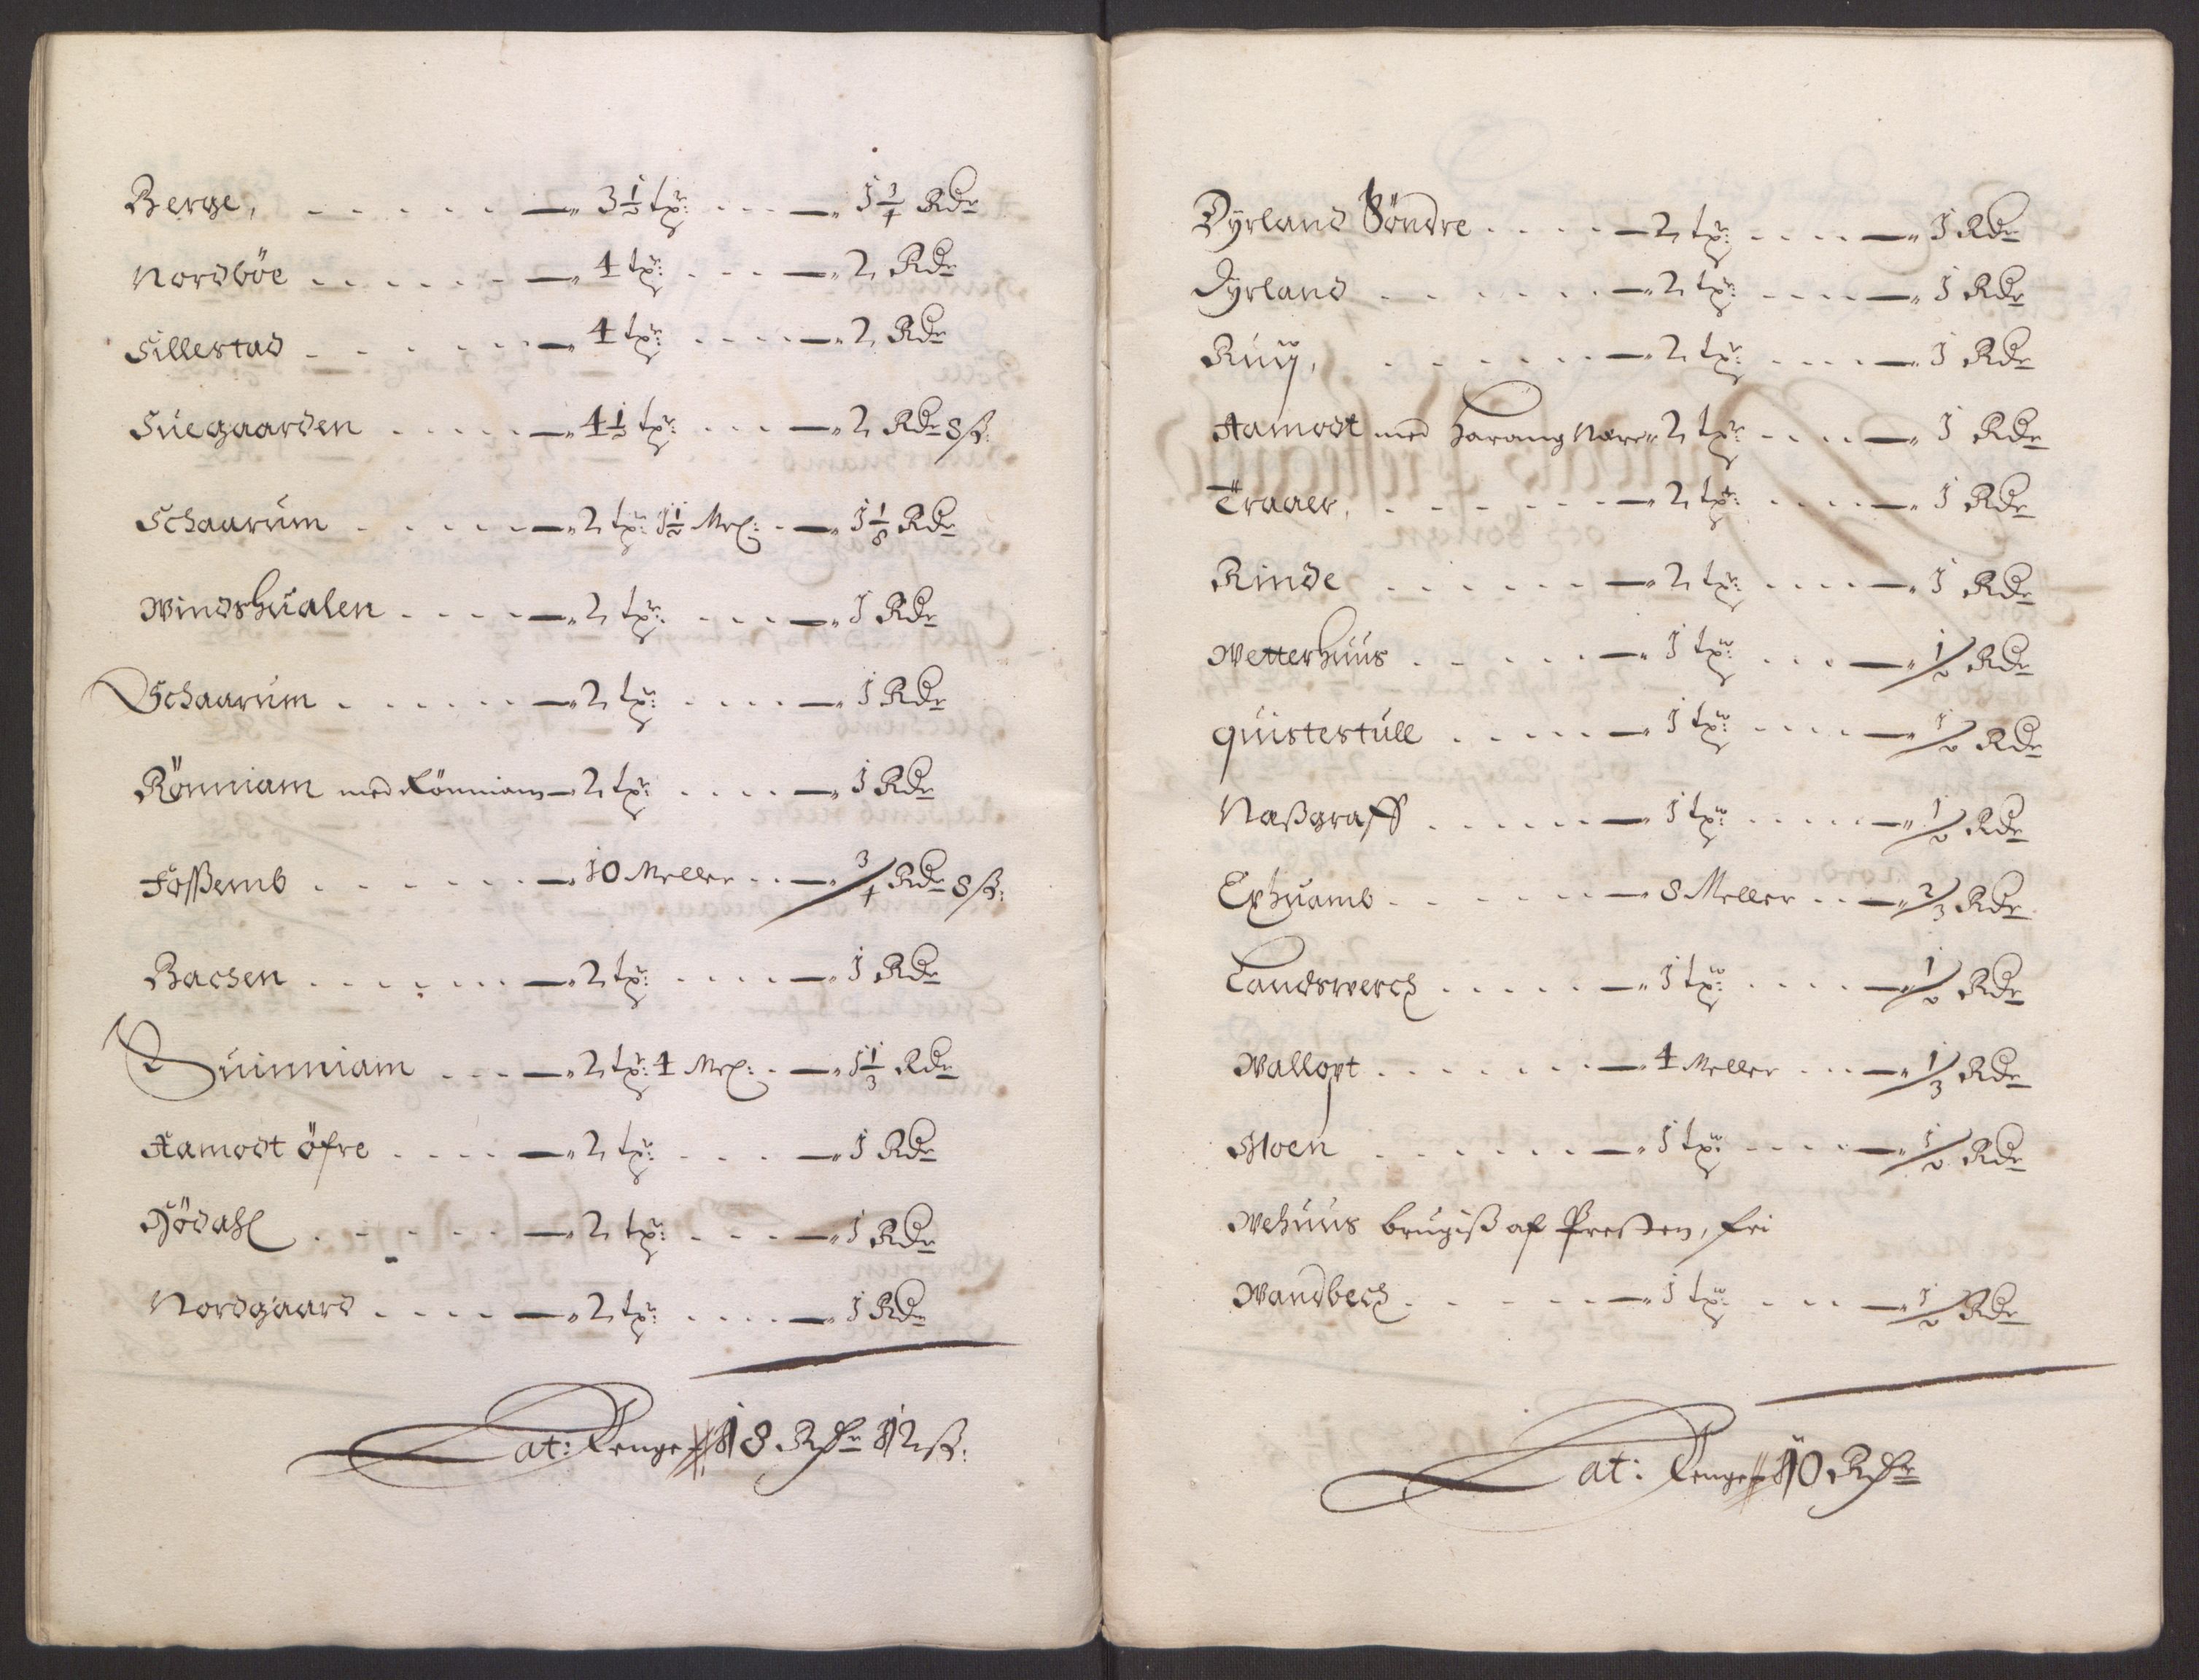 Berge, . . . . . — 3½ tx: . . . — 1¾ Rdr
Nordböe . . . . . — 4 tx: . . . — 2 Rdr
Sillestad . . . . . — 4 tx: . . . — 2 Rdr
Suegaarden . . . . — 4½ tx: . . . — 2 Rdr 8 ß:
Schaarum . . . . . — 2 tx: 1½ Mel: . — 1⅛ Rdr
Windshualen . . . . — 2 tx: . . . — 1 Rdr
Schaarum . . . . . — 2 tx: . . . . — 1 Rdr
Rönniam med Rönniam — 2 tx: . . . . — 1 Rdr
Foßemb . . . . . . — 10 Meller . . — ¾ Rdr 8 ß:
Bachen . . . . . . — 2 tx: . . . . — 1 Rdr
Quinniam . . . — 2 tx: 4 Mel: . — 1⅓ Rdr
Aamodt öfre . . . . — 2 tx: . . . — 1 Rdr
Hödahl . . . . . — 2 tx: . . . — 1 Rdr
Nordgaard . . . . — 2 tx: . . . . — 1 Rdr
Lat: Penge 18 Rdr 12 ß:
Dyrland Söndre . . . . — 2 tx: . . . . — 1 Rdr
Dyrland . . . . . . — 2 tx: . . . . — 1 Rdr
Ruy, . . . . . — 2 tx: . . . . — 1 Rdr
Aamodt med Harang Nore 2 tx: . . . . — 1 Rdr
Traaer, . . . . . — 2 tx: . . . . — 1 Rdr
Rinde . . . . . . — 2 tx: . . . . — 1 Rdr
Wetterhuus . . . . . — 1 tx: . . . — ½ Rdr
Quistestull . . . . . — 1 tx: . . . . — ½ Rdr
Naßgraff . . . . . — 1 tx: . . . . — ½ Rdr
Exhuamb . . . . . — 8 Meller . . — ⅔ Rdr
Landswerch . . . . . — 1 tx: . . . . — ½ Rdr
Wallopt . . . . . . — 4 Meller . . . — ⅓ Rdr
Moen . . . . . . — 1 tx: . . . . — ½ Rdr
Wehuus brugiß af Presten, fri
Wandbech . . . . . — 1 tx: . . . — ½ Rdr
Lat: Penge 10 Rdr